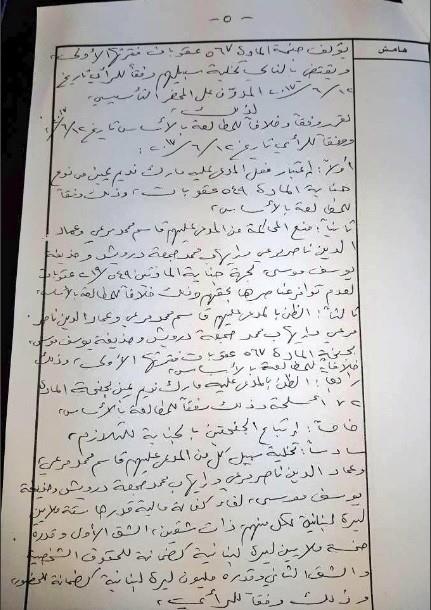 - ٥ -
هامش
يؤلف جنحة المادة ٥٦٧ عقوبات فقرتها الأولى،
ويقتضي بالتالي تخلية سبيلهم وفقاً للرأي تاريخ
١٢/٦/٢٠١٣ المدون على المحضر التأسيسي.
لذلك
نقرر وفقاً وخلافاً للمطالعة بالأساس تاريخ ١٢/٦/
ووفقاً للرأي تاريخ ١٢/٦/٢٠١٣:
أولاً: إعتبار فعل المدعى عليه مارك نديم يمين من نوع
جناية المادة ٥٤٩ عقوبات، وذلك وفقاً
للمطالعة بالأساس.
ثانياً: منع المحاكمة عن المدعى عليهم قاسم محمد مرعي وعماد
الدين ناصر مرعي وإيهاب محمد جمعة درويش وحذيفة
يوسف موسى لجهة جناية المادتين ٥٤٩/٢١٩ عقوبات
لعدم توافر عناصرها بحقهم وذلك خلافاً للمطالعة بالأساس.
ثالثاً: الظن بالمدعى عليهم قاسم محمد مرعي وعماد الدين ناصر
مرعي وإيهاب محمد جمعة درويش وحذيفة يوسف موسى
بجنحة المادة ٥٦٧ عقوبات فقرتها الأولى، وذلك
خلافاً للمطالعة بالأساس.
رابعاً: الظن بالمدعى عليه مارك نديم يمين بجنحة المادة
٧٢ أسلحة وذلك وفقاً للمطالعة بالأساس.
خامساً: إتباع الجنحتين بالجناية للتلازم.
سادساً: تخلية سبيل كل من المدعى عليهم قاسم محمد مرعي
وعماد الدين ناصر مرعي وإيهاب محمد جمعة درويش وحذيفة
يوسف موسى، لقاء كفالة مالية قدرها ستة ملايين
ليرة لبنانية لكل منهم ذات شقين، الشق الأول وقدره
خمسة ملايين ليرة لبنانية كضمانة للحقوق الشخصية
والشق الثاني وقدره مليون ليرة لبنانية كضمانة للحضور،
وذلك وفقاً للرأي.